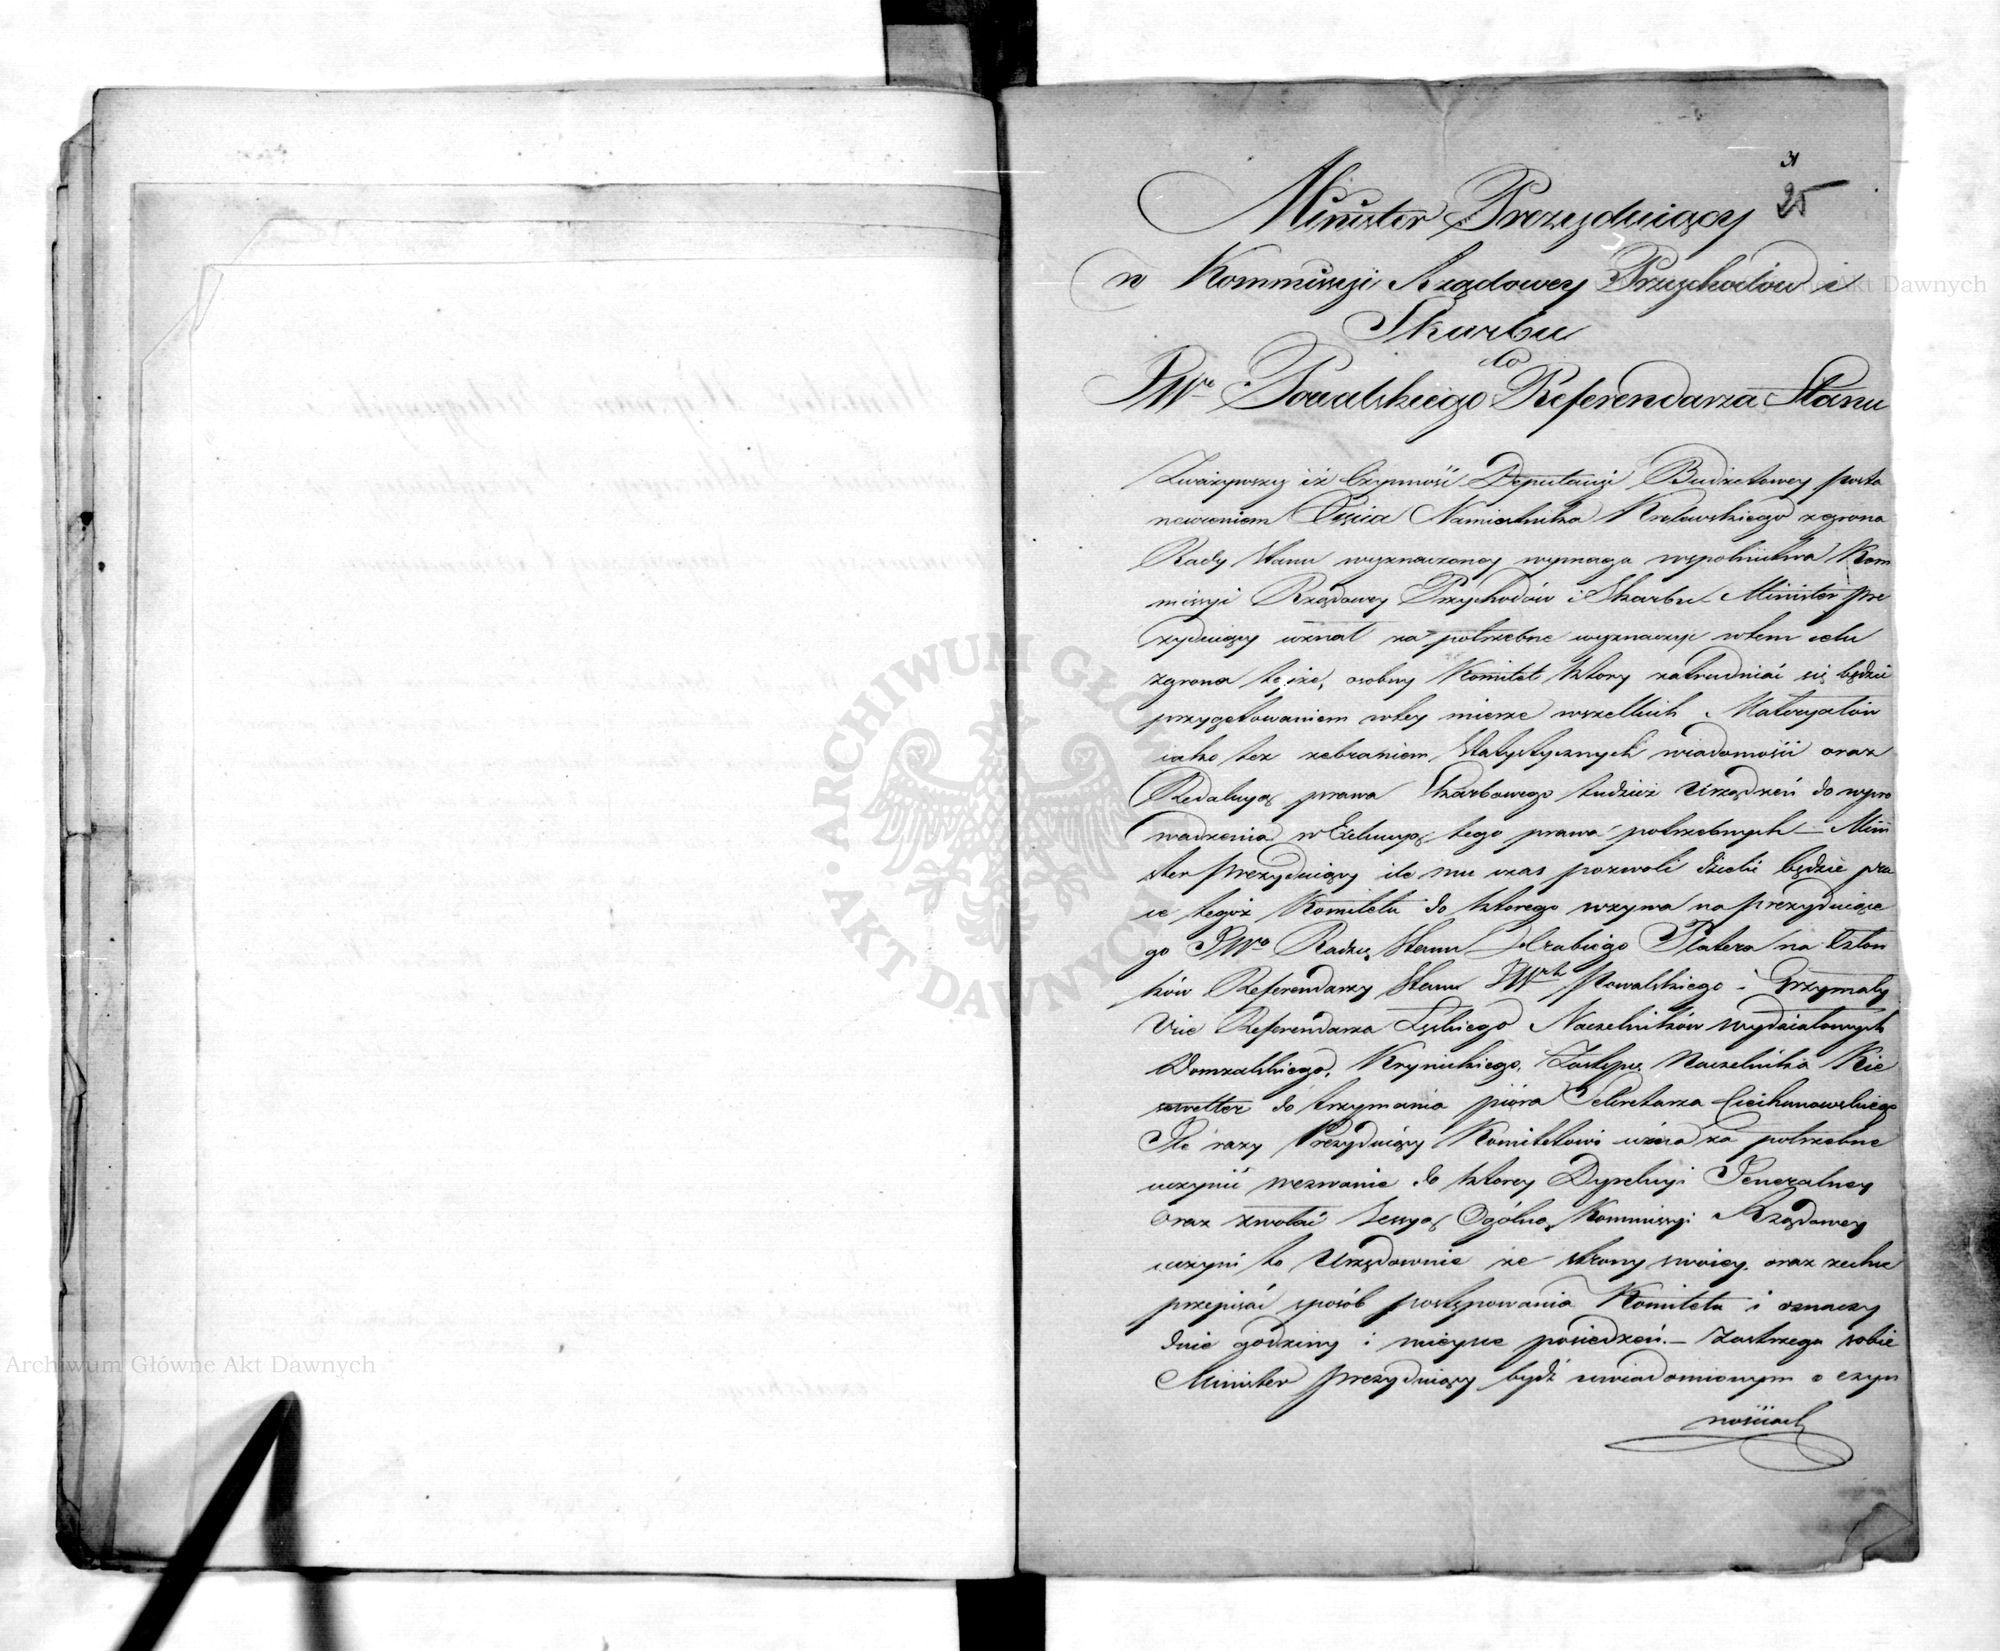 31
25
Minister Prezyduiący
w Kommissyi Rządowey Przychodów i
Skarbu
do
JWo Kowalskiego Referendarza Stanu
Zważywszy iż Czynność Deputacyi Budżetowey posta
nowieniem Xięcia Namiestnika Królewskiego z grona
Rady Stanu wyznaczoney wymaga wspólnictwa Kom
missyi Rządowey Przychodów i Skarbu Minister Pre
zyduiący uznał za potrzebne wyznaczyć wtem celu
zgrona teyże, osobny Komitet który zatrudniać się będzie
przygotowaniem wtey mierze wszelkich Materyałów
iako też zebraniem Statystycznych wiadomości oraz
Redakcyą prawa Skarbowego tudzież Urządzeń do wypro
wadzenia w Exekucyą tego prawa potrzebnych – Mini
ster Prezyduiący ile mu czas pozwoli dzielić będzie pra
ce tegoż Komitetu do którego wzywa na prezyduiące
go JWo Radzcę Stanu Hrabiego Platera na Człon
ków Referendarzy Stanu JWch Kowalskiego i Grzymały
Vice Referendarza Łęskiego Naczelników wydziałowych
Domzalskiego, Krynickiego, Zastępcę Naczelnika Kie
sewetter do trzymania pióra Sekretarza Ciechanowskiego
Ile razy Prezyduiący Komitetowi uzna za potrzebne
uczynić wezwanie do którey Dyrekcyi Generalney
oraz zwołać Sessyą Ogólną Kommissyi Rządowey
uczyni to Urzędownie ze strony swoiey, oraz zechce
przepisać sposób postępowania Komitetu i oznaczy
dnie godziny i mieysce posiedzeń. – Zastrzega sobie
Minister Prezyduiący bydź uwiadomionym o czyn
nościach
Archiwum Główne Akt Dawnych
ARCHIWUM GŁÓWNE AKT DAWNYCH